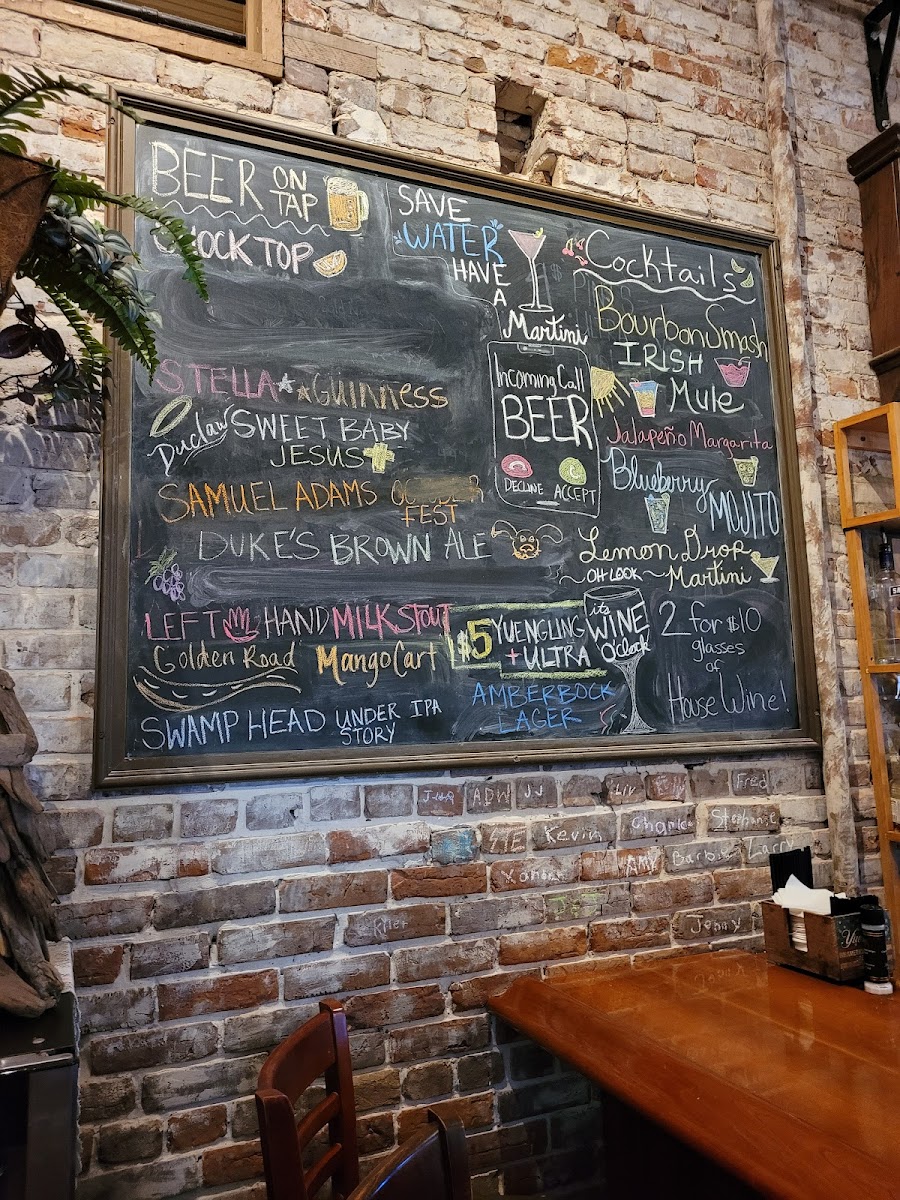 BEER ON TAP
SHOCK TOP
STELLA GUINNESS
Duclaw SWEET BABY
JESUS
SAMUEL ADAMS
FEST
DUKE'S BROWN ALE
LEFT HAND MILK STOUT
Golden Road Mango Cart
SWAMP HEAD UNDER IPA
STORY
SAVE
WATER
HAVE
A
Martini
Incoming Call
BEER
DECLINE ACCEPT
$5 YUENGLING
+ ULTRA
AMBERBOCK
LAGER
Cocktails
Bourbon Smash
IRISH
Mule
Jalapeño Margarita
Blueberry
MOJITO
Lemon Drop
Martini
OH LOOK
it's
WINE
O'clock
2 for $10
glasses
of
House Wine!
ADW JJ Liv Fred
Kevin Stephanie
AMY Barbie Larry
Jenny